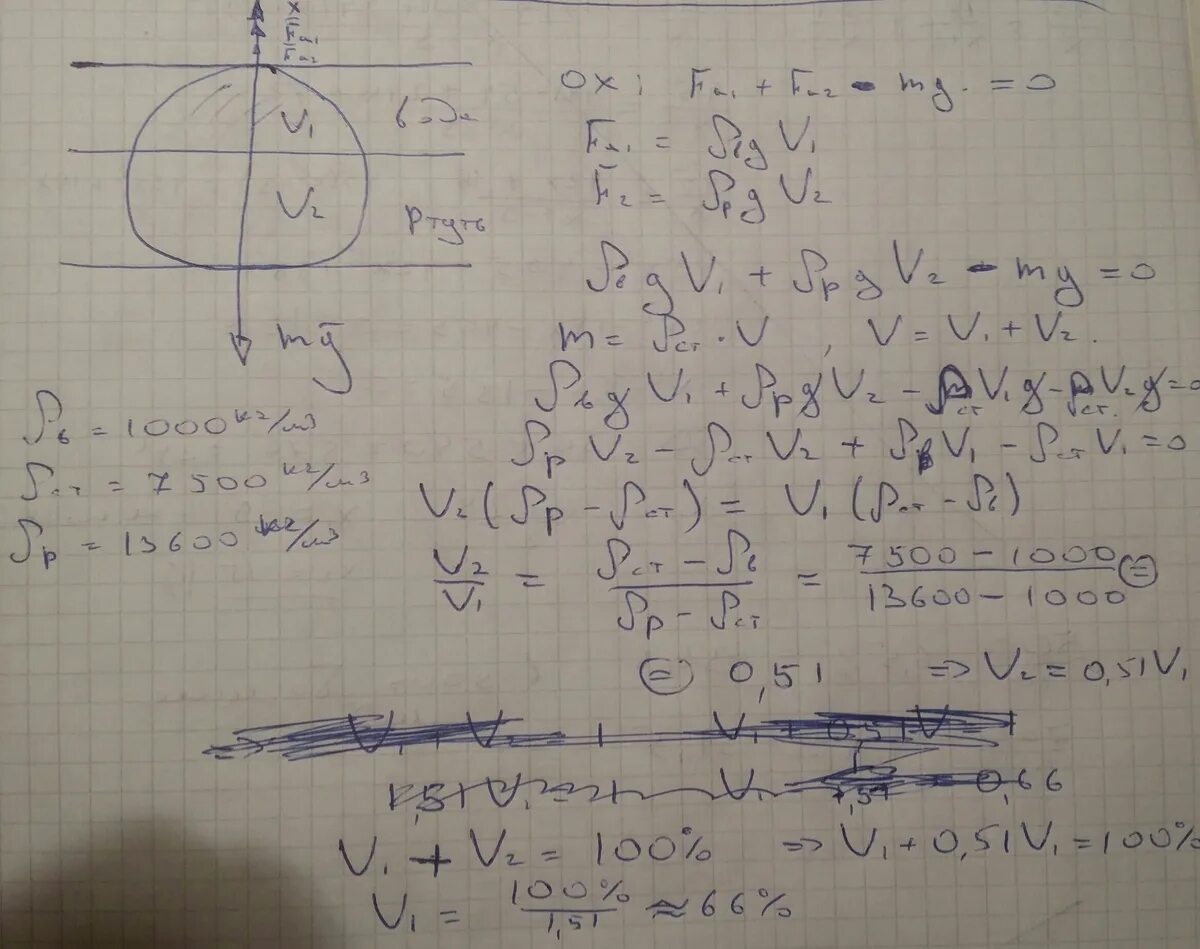 x
V₁
вода
V₂
ртуть
mg̅
ρв = 1000 кг/м³
ρст = 7500 кг/м³
ρр = 13600 кг/м³
OX: Fа₁ + Fа₂ - mg = 0
Fа₁ = ρвg V₁
F₂ = ρрg V₂
ρвg V₁ + ρрg V₂ - mg = 0
m = ρст · V , V = V₁ + V₂.
ρвg V₁ + ρрg V₂ - ρстV₁g - ρст.V₂g = 0
ρр V₂ - ρст V₂ + ρвV₁ - ρст V₁ = 0
V₂ (ρр - ρст) = V₁ (ρст - ρв)
V₂/V₁ = (ρст - ρв)/(ρр - ρст) = (7500 - 1000)/(13600 - 1000) ⊜
⊜ 0,51 ⇒ V₂ = 0,51V₁
V₁ + V₂ = 100% ⇒ V₁ + 0,51V₁ = 100%
V₁ = 100%/1,51 ≈ 66%